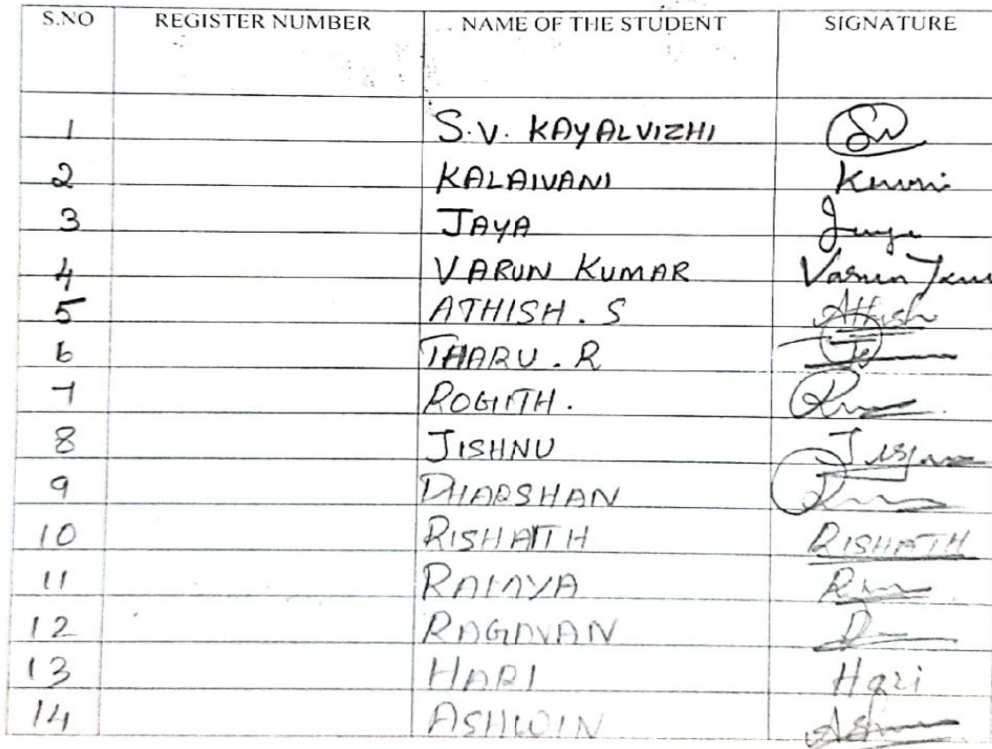 S.NO REGISTER NUMBER NAME OF THE STUDENT SIGNATURE
1 S.V. KAYALVIZHI
2 KALAIVANI
3 JAYA
4 VARUN KUMAR Varun
5 ATHISH . S Athish
6 THARU . R
7 ROGITH .
8 JISHNU
9 DHARSHAN
10 RISHATH RISHATH
11 RAMYA
12 RAGAVAN
13 HARI Hari
14 ASHWIN